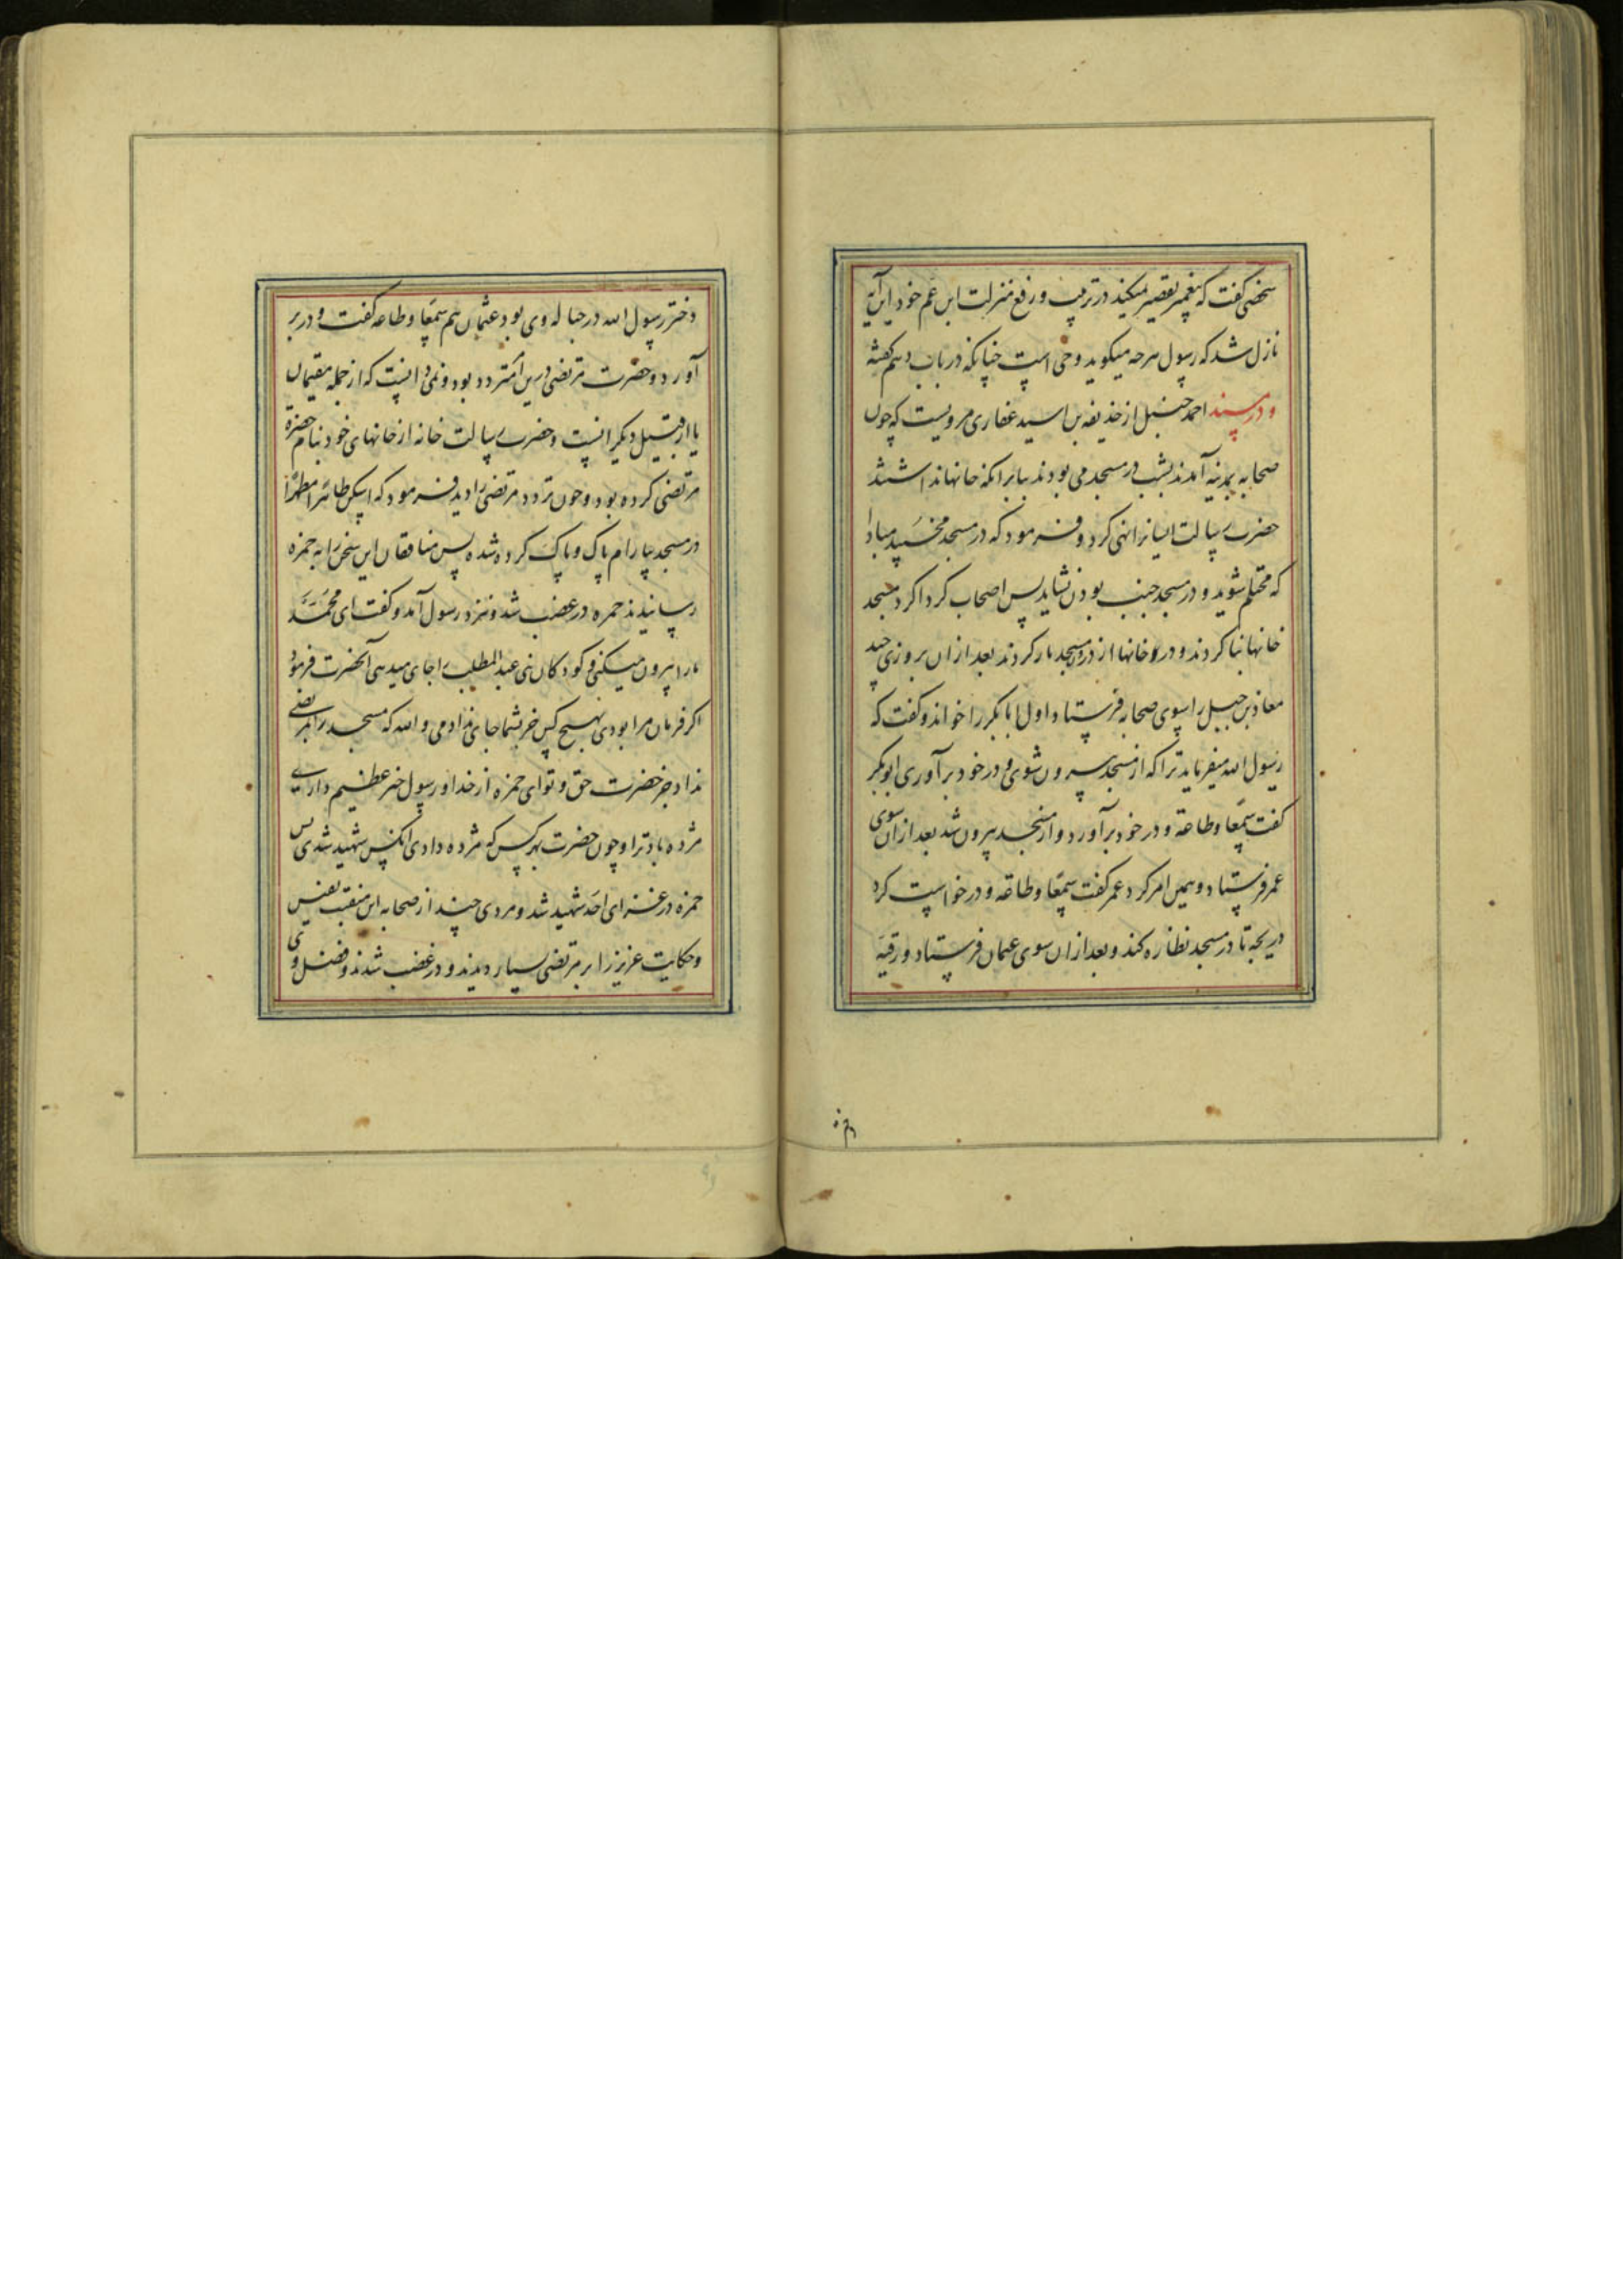 شخصی گفت که پیغمبر تقصیر نمیکند در ترتیب و رفع منزلت ابن عم خود این آیة
نازل شد که رسول هرچه میکوید وحی است چنانکه در باب دهم کفته
و در مسند احمد حنبل از حذیفه بن اسید غفاری مرویست که چون
صحابه بمدینه آمدند بشب در مسجد می بودند بنابر انکه خانها نداشتند
حضرت رسالت ایشانرا نهی کرد و فرمود که در مسجد مخسپید مبادا
که محتلم شوید و در مسجد جنب بودن نشاید پس اصحاب کرداکرد مسجد
خانها بنا کردند و درو خانها از در مسجد باز کردند بعد از ان بروزی چند
معاذ بن جبل را بسوی صحابه فرستاد اول ابابکر را خواند و کفت که
رسول الله میفرماید ترا که از مسجد بیرون شوی و در خود برآوری ابوبکر
کفت سمعا وطاعة و در خود برآورد و از مسجد بیرون شد بعد از ان سوی
عمر فرستاد و همین امر کرد عمر کفت سمعا وطاعه و درخواست کرد
دریچه تا در مسجد نظاره کند و بعد از ان سوی عثمان فرستاد و رقیه
دختر
دختر رسول الله در حباله وی بود عثمان هم سمعا وطاعه کفت و در بر
آورد و حضرت مرتضی درین امر متردد بود و نمی دانست که از جمله مقیمان
یا از قبیل دیکرانست و حضرت رسالت خانه از خانهای خود بنام حضرة
مرتضی کرده بود و چون تردد مرتضی را دید فرمود که اسکن طاهرا مطهرا
در مسجد بیارام پاک و پاک کرده شده پس منافقان این سخن را به حمزه
رسانیدند حمزه در غضب شد و نزد رسول آمد و کفت ای محمد
مارا بیرون میکنی و کودکان بنی عبد المطلب را جای میدهی آنحضرت فرمود
اکر فرمان مرا بودی بهیچ کس جز بشما جای ندادمی والله که مسجد را بمرتضی
نداد جز حضرت حق و تو ای حمزه از خدا و رسول خبر عظیم داری
مژده باد ترا و چون حضرت بهر کس که مژده دادی انکس شهید شدی پس
حمزه در غزای احد شهید شد و مردی چند از صحابه این منقبت نفیس
و حکایت عزیز را بر مرتضی بسیار دیدند و در غضب شدند و فضل وی